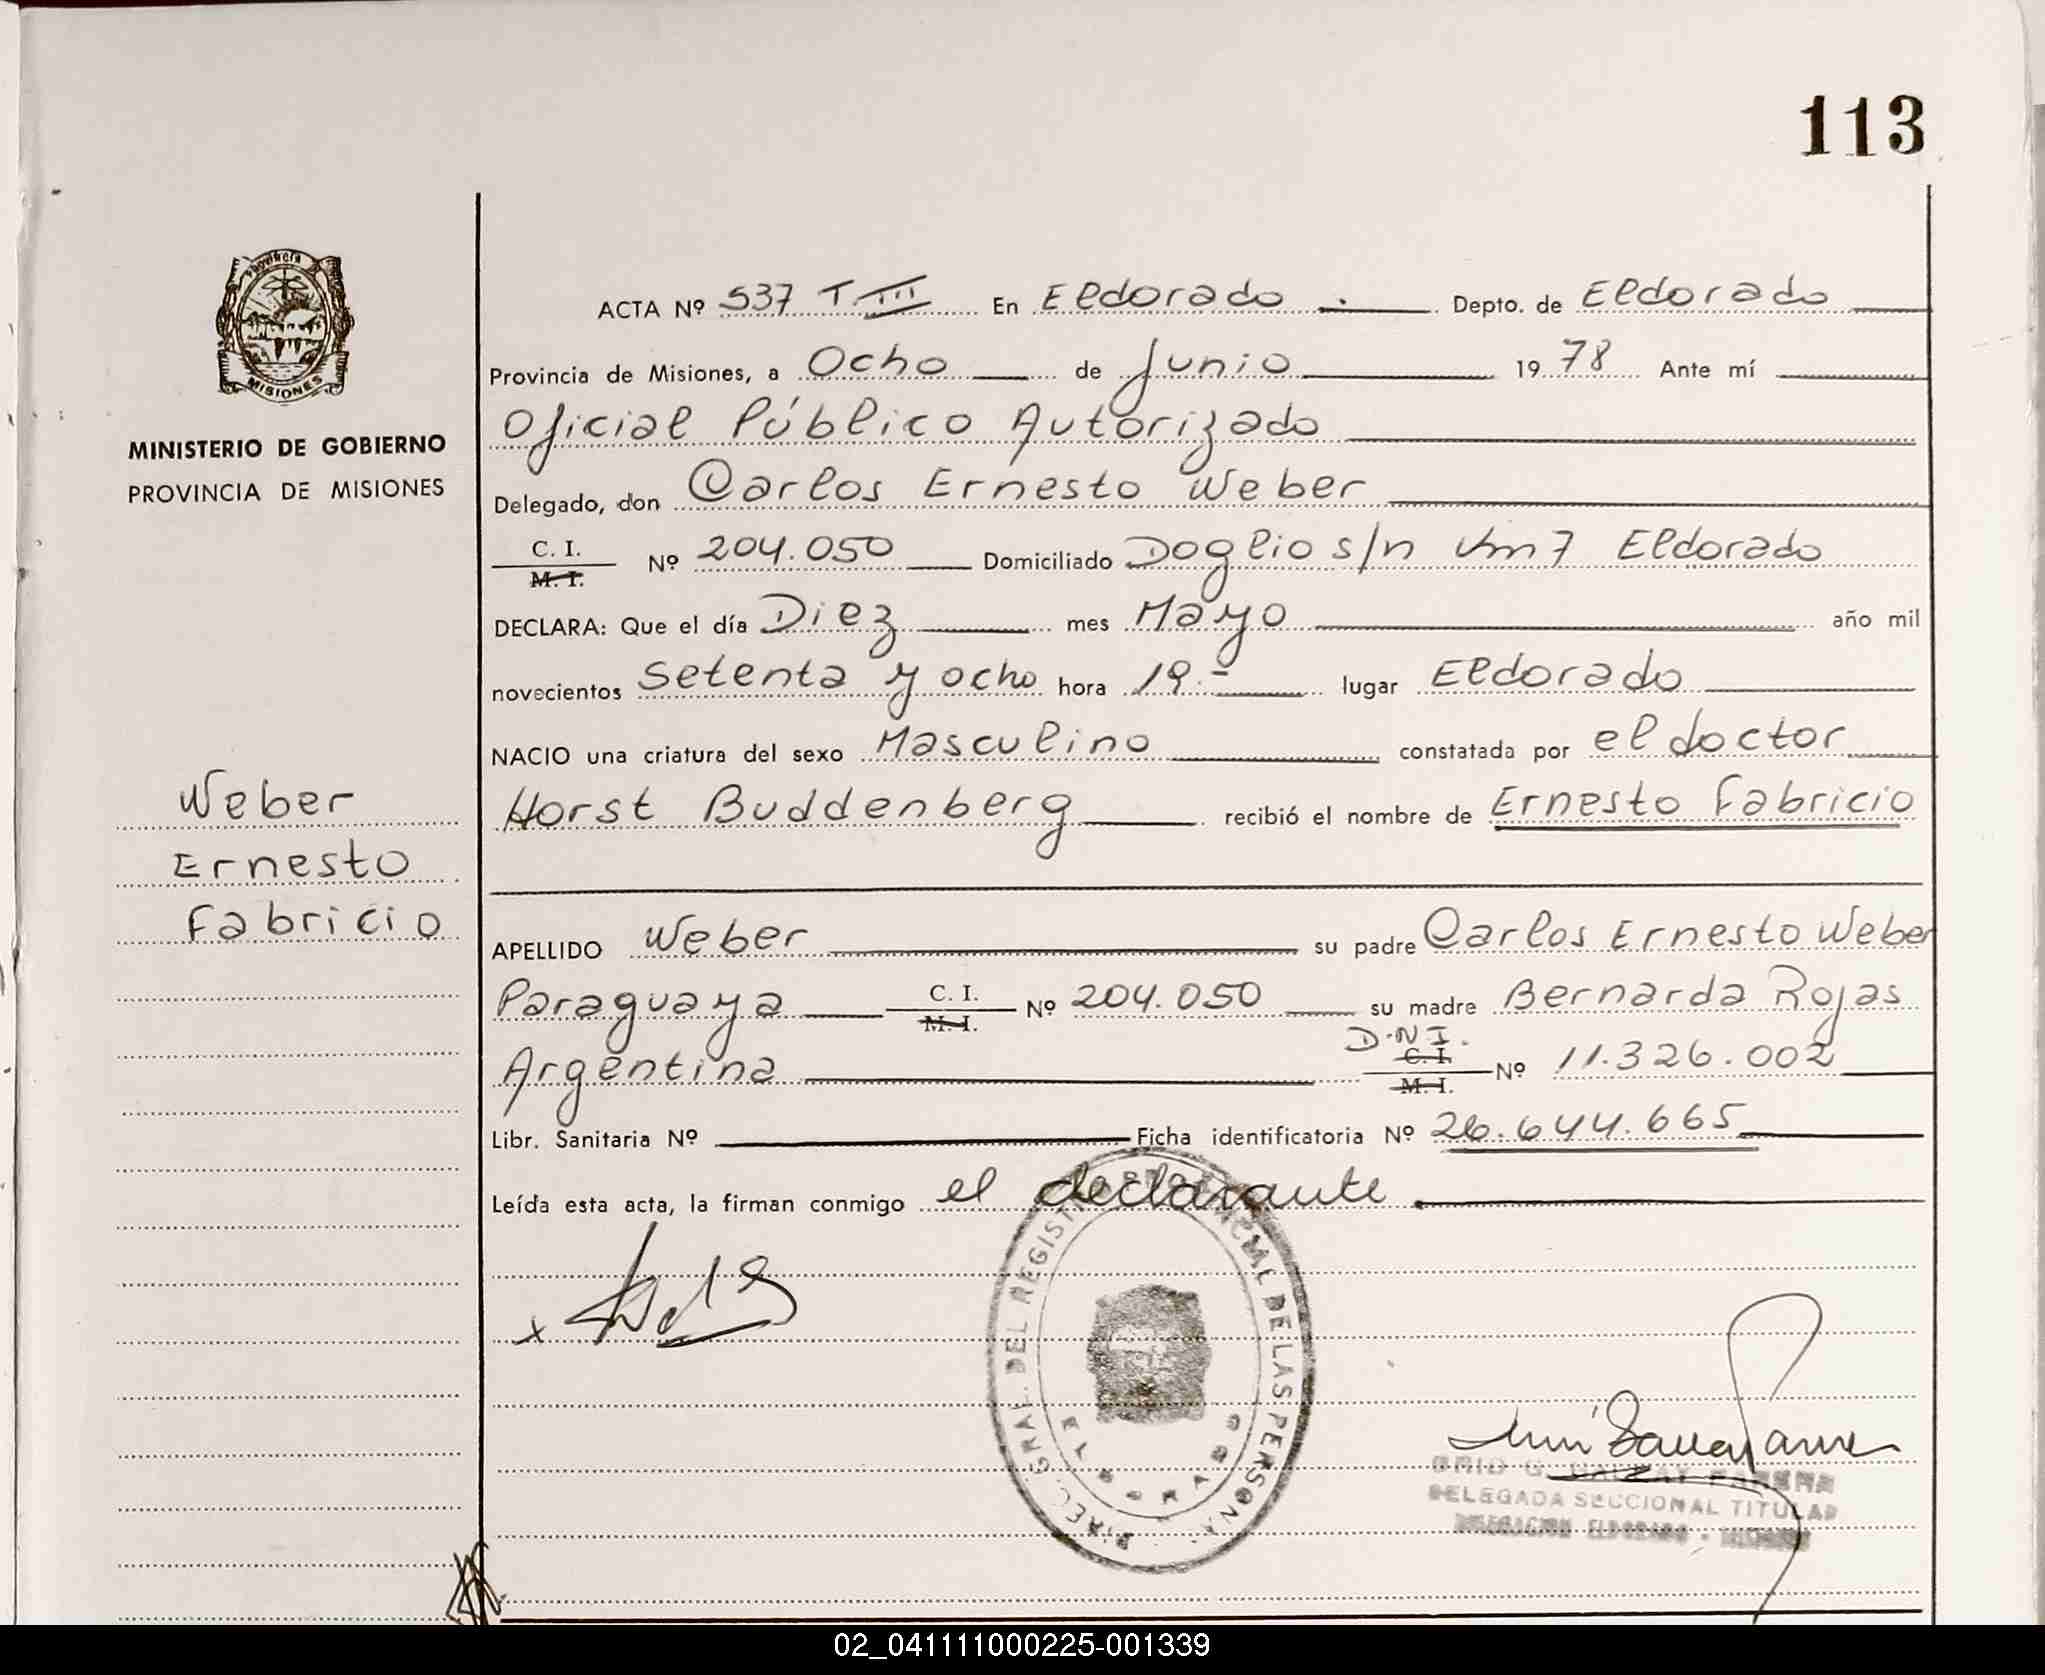 113
Provincia
MISIONES
MINISTERIO DE GOBIERNO
PROVINCIA DE MISIONES
Weber
Ernesto
Fabricio
ACTA Nº 537 T III En Eldorado . Depto. de Eldorado
Provincia de Misiones, a Ocho de Junio 1978 Ante mí
Oficial Público Autorizado
Delegado, don Carlos Ernesto Weber
C. I.
M. I. Nº 204.050 Domiciliado Doglio s/n Km 7 Eldorado
DECLARA: Que el día Diez mes Mayo año mil
novecientos setenta y ocho hora 19.- lugar Eldorado
NACIO una criatura del sexo Masculino constatada por el doctor
Horst Buddenberg recibió el nombre de Ernesto Fabricio
APELLIDO Weber su padre Carlos Ernesto Weber
Paraguaya C. I. M. I. Nº 204.050 su madre Bernarda Rojas
Argentina D.N.I. C. I. M. I. Nº 11.326.002
Libr. Sanitaria Nº Ficha identificatoria Nº 26.644.665
Leída esta acta, la firman conmigo el declarante
x
DIREC. GRAL. DEL REGISTRO DE LAS PERSONAS
ELDORADO
DELEGADA SECCIONAL TITULAR
02_041111000225-001339